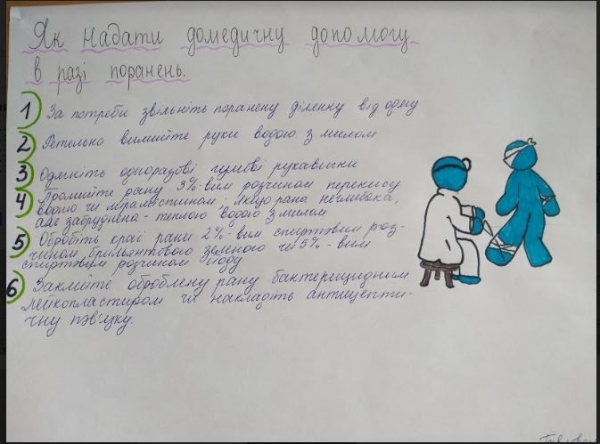 Як надати домедичну допомогу
в разі поранень.
1 За потреби звільніть поранену ділянку від одягу
2 Ретельно вимийте руки водою з милом
3 Одягніть одноразові гумові рукавички
4 Промийте рану 3%-вим розчином перекису
водню чи мірамістином. Якщо рана неглибока,
але забруднена - теплою водою з милом
5 Обробіть краї рани 2%-вим спиртовим роз-
чином брильянтового зеленого чи 5%-вим
спиртовим розчином йоду
6 Заклейте оброблену рану бактерицидним
лейкопластиром чи накладіть антисепти-
чну пов'язку.